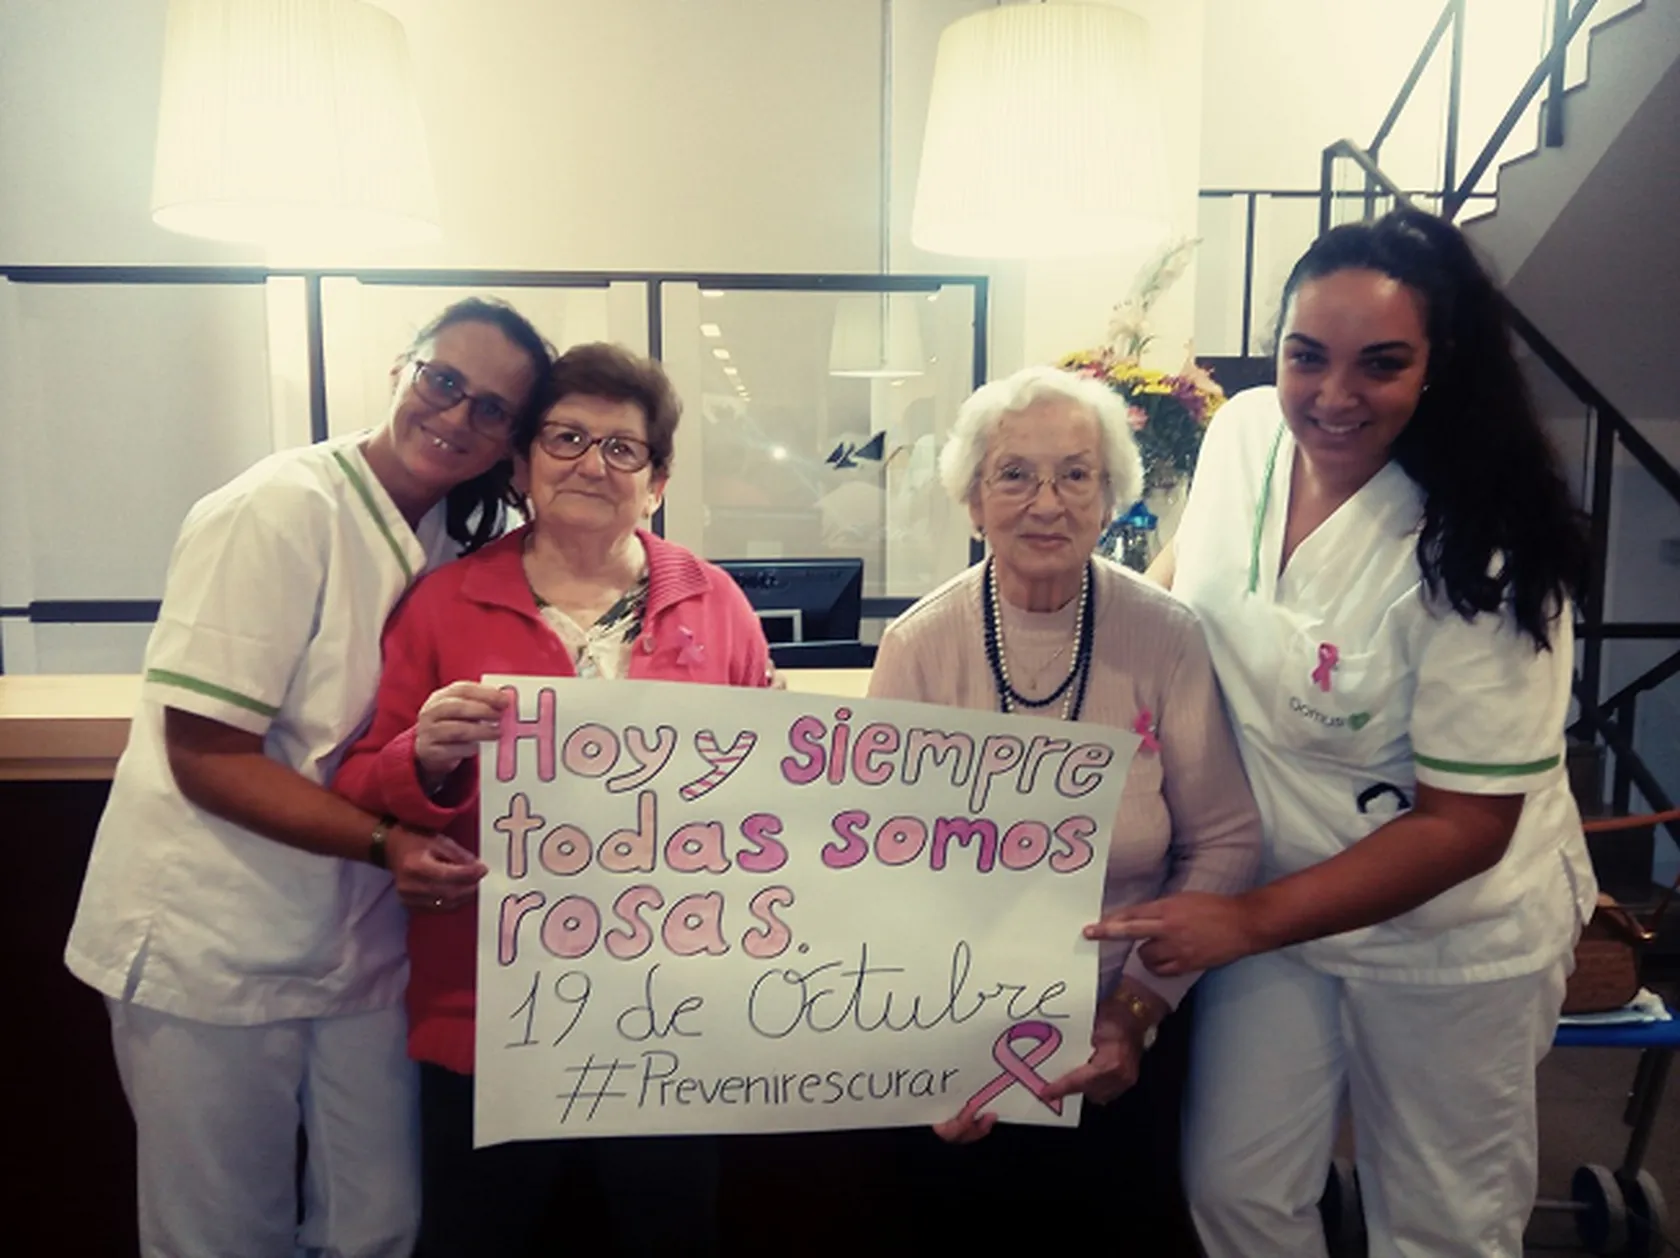 Hoy y siempre
todas somos
rosas.
19 de Octubre
#Prevenirescurar
Domus